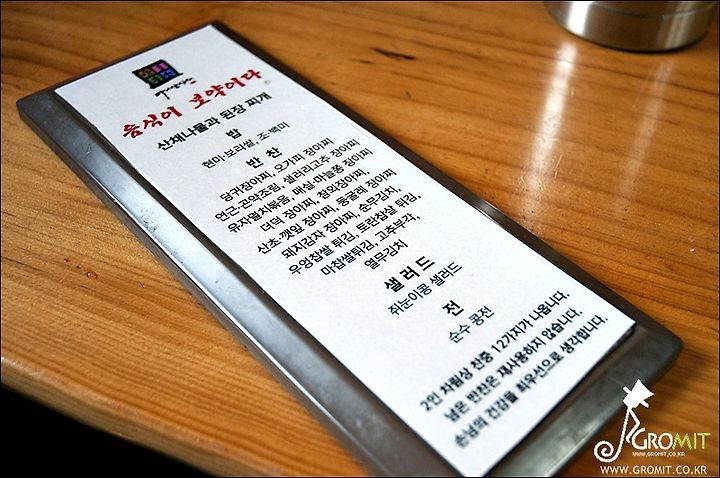 음식이 보약이다
산채나물과 된장 찌개
밥
현미·보리쌀, 조·백미
반 찬
당귀장아찌, 오가피 장아찌
연근·곤약조림, 샐러리고추 장아찌
유자멸치볶음, 매실·마늘쫑 장아찌
더덕 장아찌, 참외장아찌,
산초·깻잎 장아찌, 둥굴레 장아찌
돼지감자 장아찌, 순무김치,
우엉찹쌀 튀김, 토란찹쌀 튀김,
마찹쌀튀김, 고추부각,
열무김치
샐 러 드
쥐눈이콩 샐러드
전
순수 콩전
2인 차림상 찬중 12가지가 나옵니다.
남은 반찬은 재사용하지 않습니다.
손님의 건강을 최우선으로 생각합니다.
GROMIT
WWW.GROMIT.CO.KR
WWW.GROMIT.CO.KR